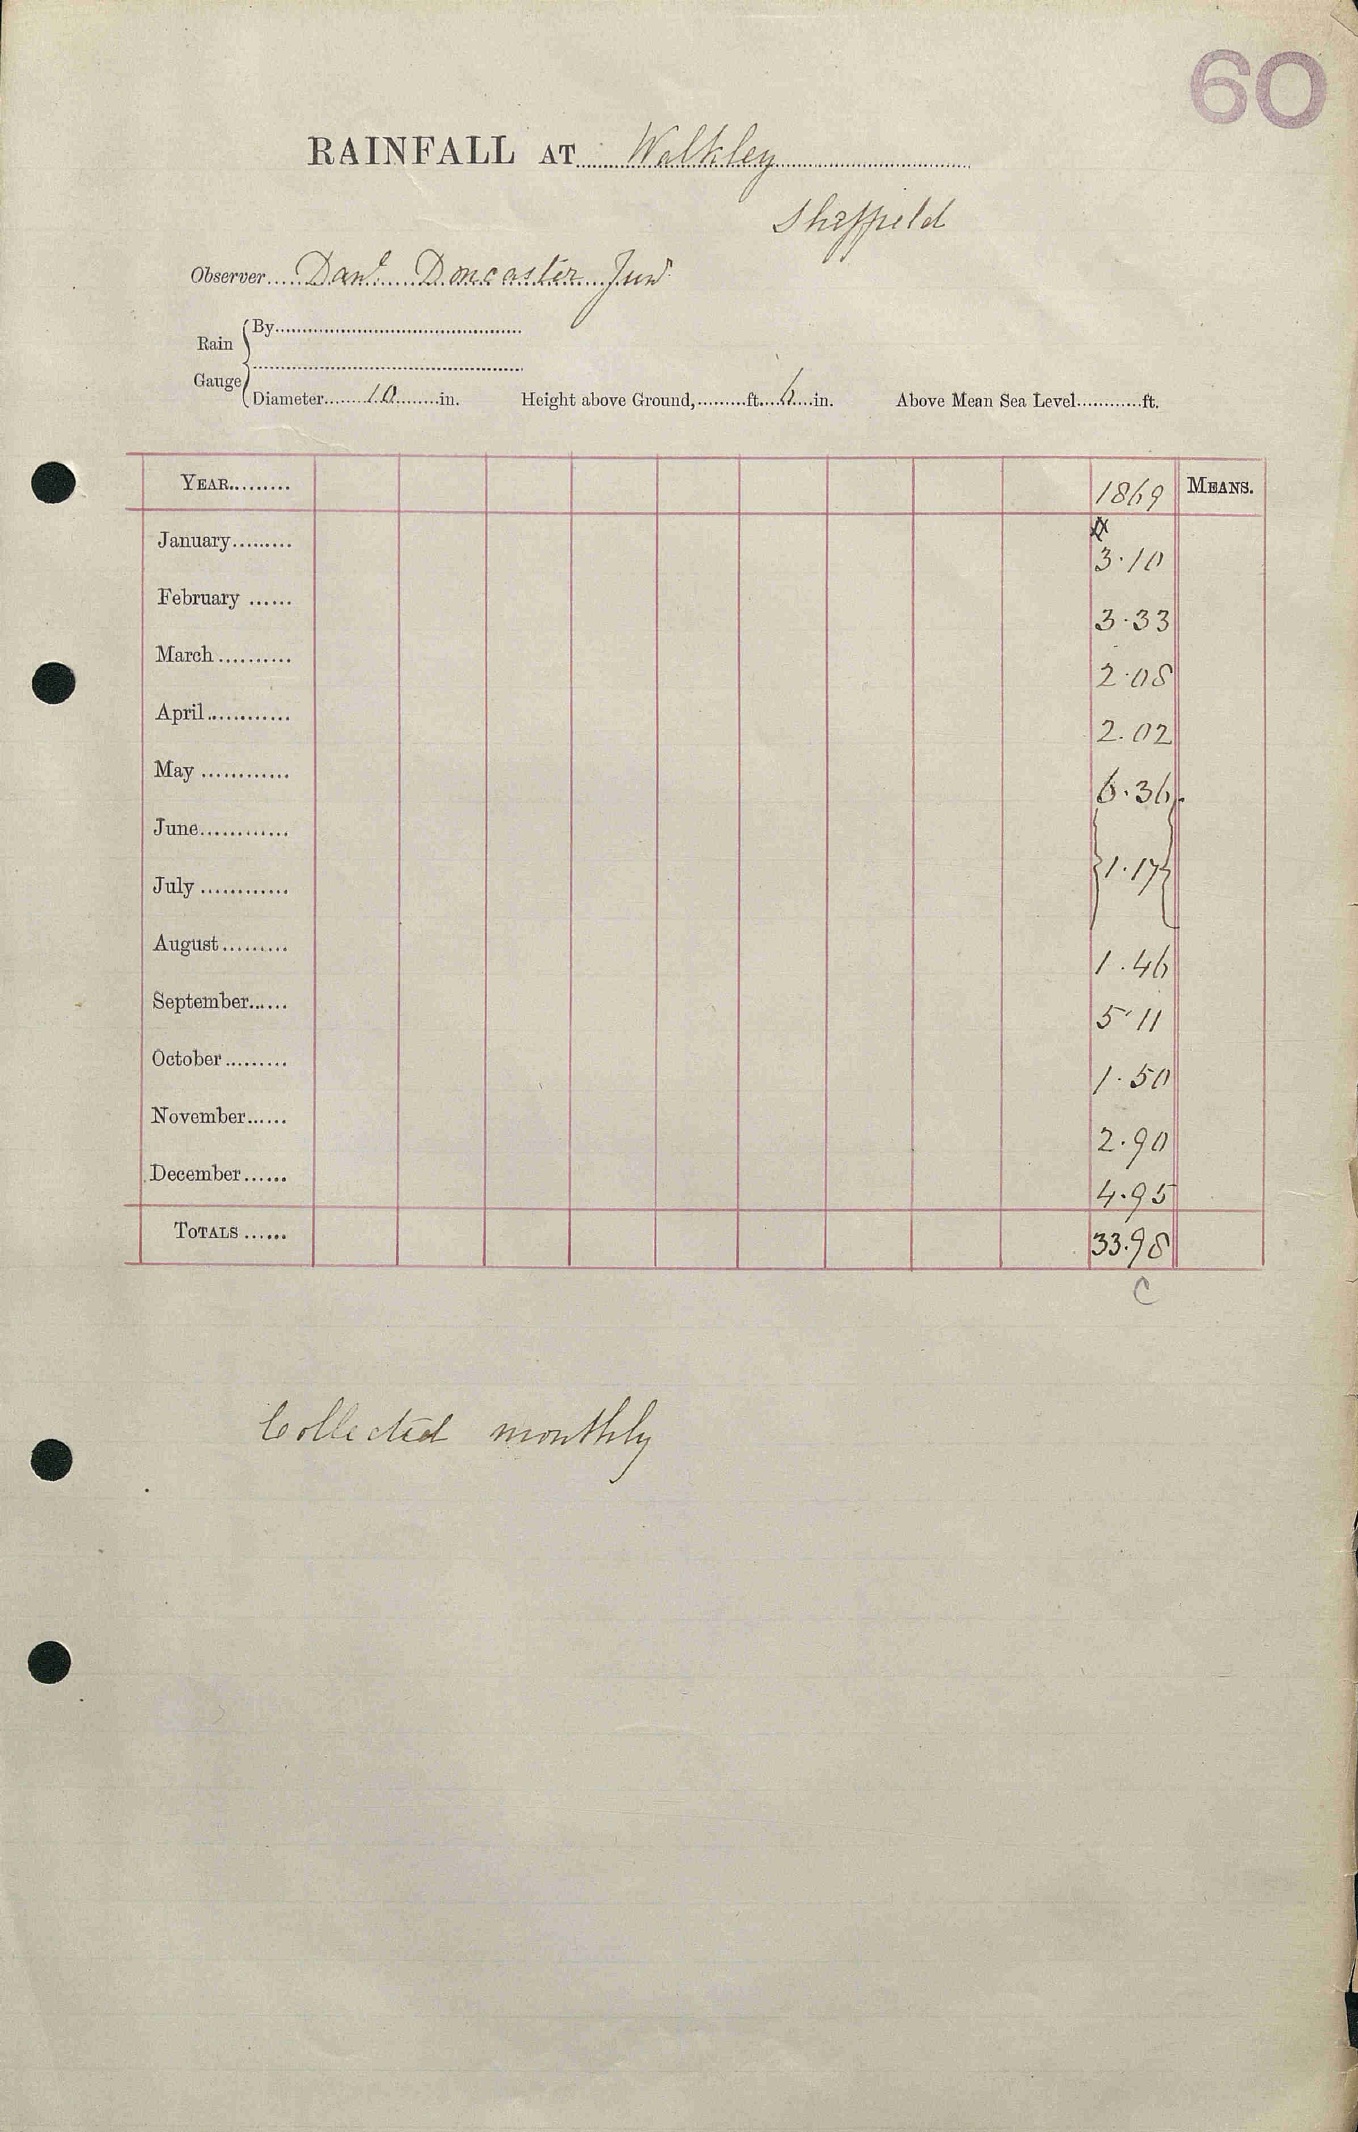 60
RAINFALL AT Walkley
Sheffield
Observer Danl. Doncaster Junr
Rain Gauge
By
Diameter 10 in. Height above Ground, ft. 6 in. Above Mean Sea Level ft.
YEAR 1869 MEANS.
January 3.10
February 3.33
March 2.08
April 2.02
May 6.36
June
July 1.17
August 1.46
September 5.11
October 1.50
November 2.90
December 4.95
TOTALS 33.98
C
Collected monthly